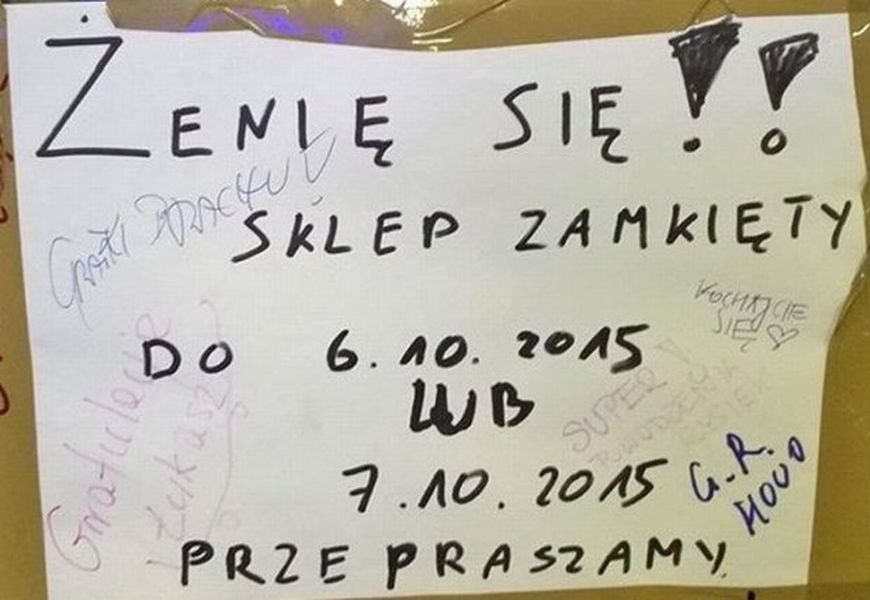 ŻENIĘ SIĘ!!
GRATKI BRACHU!
SKLEP ZAMKIĘTY
KOCHAJCIE
SIĘ ♡
DO 6.10.2015
LUB
SUPER!
POWODZENIA
Gratulacje
Łukasz
7.10.2015
G.R.
PRZEPRASZAMY.